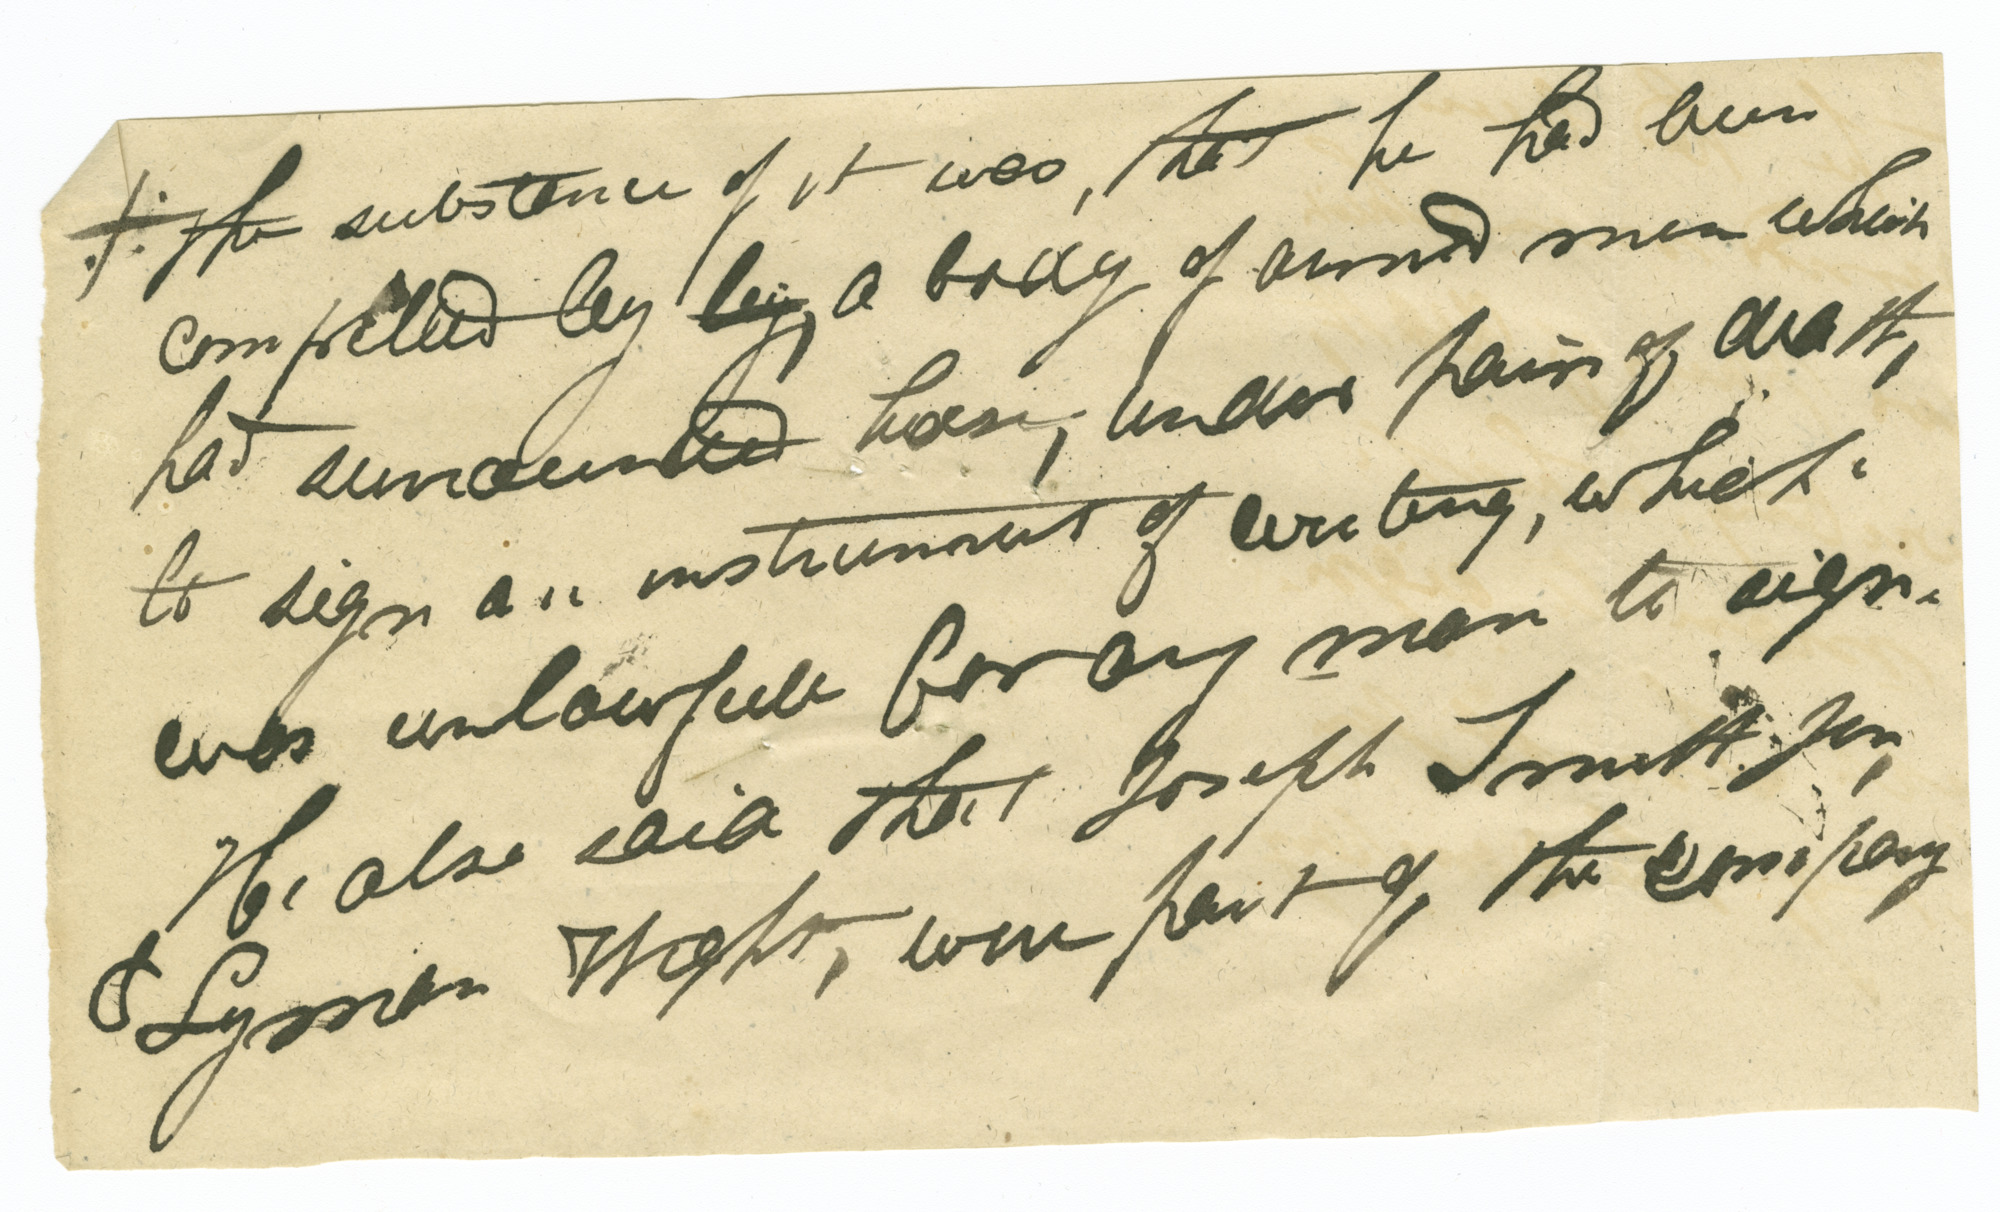 The substance of it was, that he had been
compelled by by, a body of armed men which
had surrounded house, under pain of death,
to sign an instrument of writing, which
was unlawfull for any man to sign.
He also said that Joseph Smith. Jun,
& Lyman Wight, were part of the company